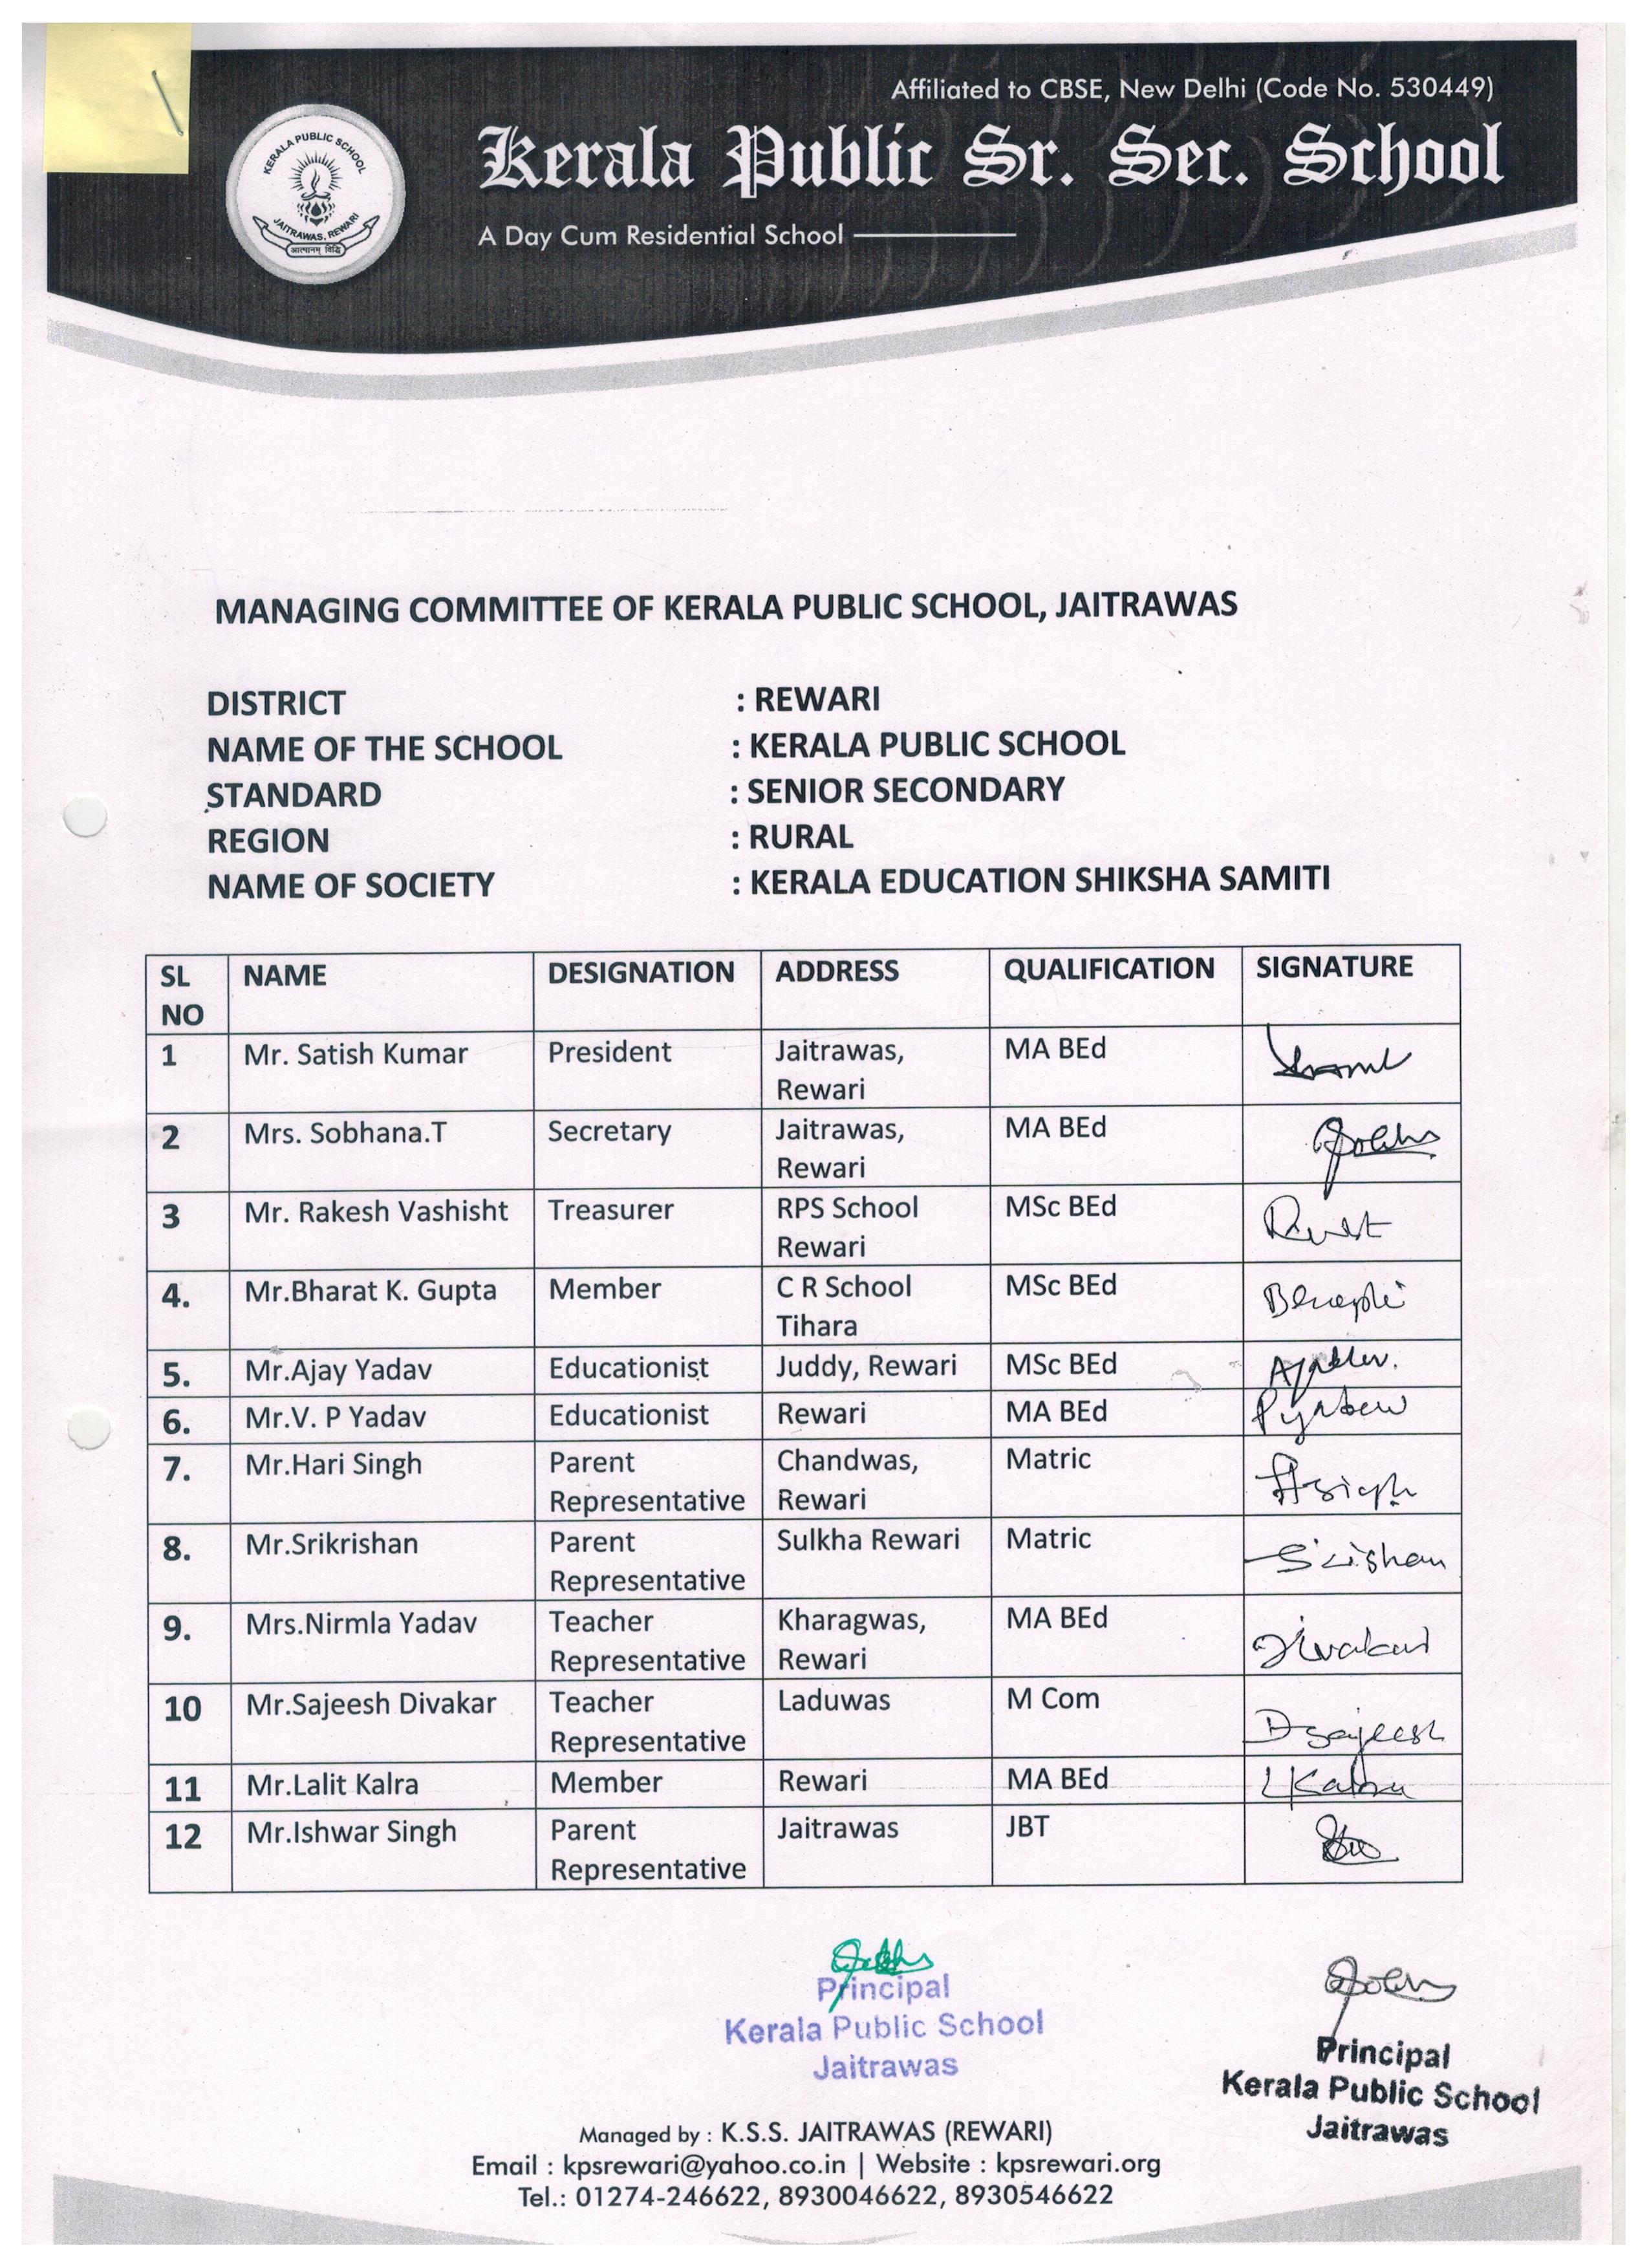 Affiliated to CBSE, New Delhi (Code No. 530449)
Kerala Public Sr. Sec. School
A Day Cum Residential School
KERALA PUBLIC SCHOOL
JAITRAWAS, REWARI
MANAGING COMMITTEE OF KERALA PUBLIC SCHOOL, JAITRAWAS
DISTRICT : REWARI
NAME OF THE SCHOOL : KERALA PUBLIC SCHOOL
STANDARD : SENIOR SECONDARY
REGION : RURAL
NAME OF SOCIETY : KERALA EDUCATION SHIKSHA SAMITI
SL NAME DESIGNATION ADDRESS QUALIFICATION SIGNATURE
NO
1 Mr. Satish Kumar President Jaitrawas, MA BEd
Rewari
2 Mrs. Sobhana.T Secretary Jaitrawas, MA BEd
Rewari
3 Mr. Rakesh Vashisht Treasurer RPS School MSc BEd
Rewari
4. Mr.Bharat K. Gupta Member C R School MSc BEd
Tihara
5. Mr.Ajay Yadav Educationist Juddy, Rewari MSc BEd
6. Mr.V. P Yadav Educationist Rewari MA BEd
7. Mr.Hari Singh Parent Chandwas, Matric
Representative Rewari
8. Mr.Srikrishan Parent Sulkha Rewari Matric
Representative
9. Mrs.Nirmla Yadav Teacher Kharagwas, MA BEd
Representative Rewari
10 Mr.Sajeesh Divakar Teacher Laduwas M Com
Representative
11 Mr.Lalit Kalra Member Rewari MA BEd
12 Mr.Ishwar Singh Parent Jaitrawas JBT
Representative
Principal
Kerala Public School
Jaitrawas
Principal
Kerala Public School
Jaitrawas
Managed by : K.S.S. JAITRAWAS (REWARI)
Email : kpsrewari@yahoo.co.in | Website : kpsrewari.org
Tel.: 01274-246622, 8930046622, 8930546622